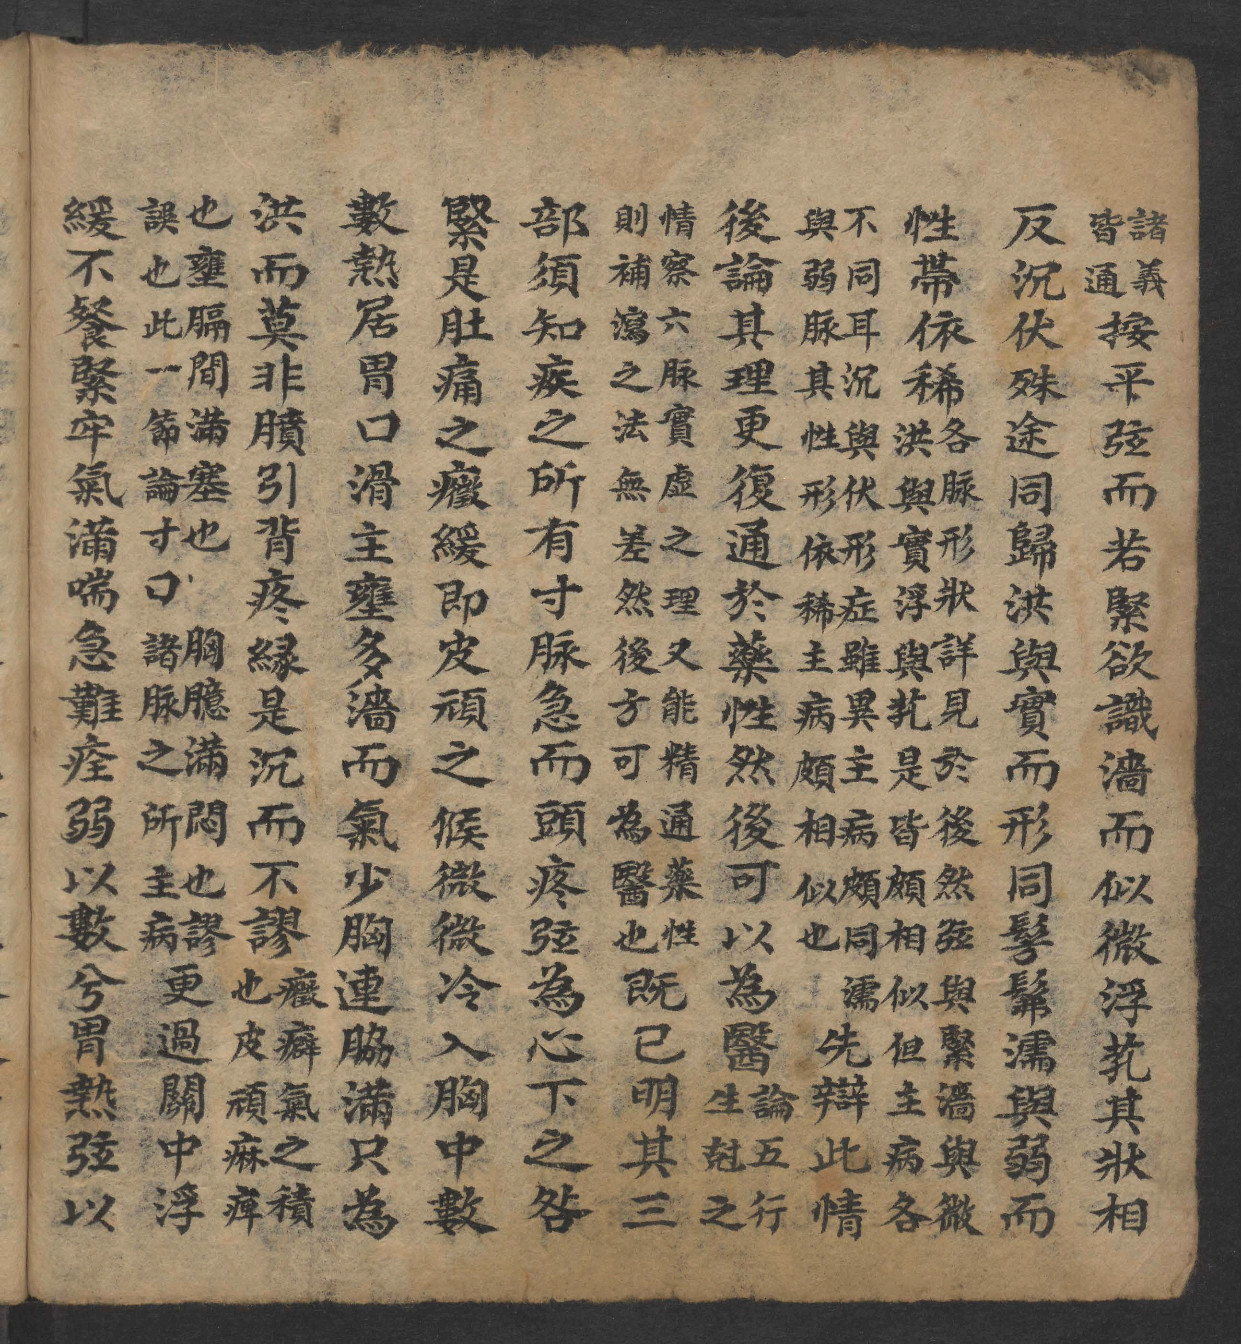 諸義
皆通
按平弦而若緊欲識濇而似微浮芤其狀相
反沉伏殊途同歸洪與實而形同髣髴濡與弱而
性帶依稀
各脉形狀詳見於後然弦與緊濇與微
洪與實浮與芤是皆頗相似但主病各
不同耳沉與伏形症雖異主病頗同濡
與弱脉其性形依稀主病頗相似也
先辯此情
後論其理更復通於藥性然後可以為醫
論五行
生尅之
情察六脉實虛之理又能精通藥性
則補瀉之法無差然後方可為醫也
既已明其三
部須知疾之所有寸脉急而頭疼弦為心下之咎
緊是肚痛之癥緩即皮頑之候微微冷入胸中數
數熱居胃口滑主壅多濇而氣少胸連脇滿只為
洪而莫非臏引背疼緣是沉而不謬
癥癖氣之積
也皮頑麻痺
也壅膈間滿塞也 胸臆滿悶也謬
誤也此一節論寸口諸脉之所主病
更過關中浮
緩不餐緊牢氣滿喘急難痊弱以數兮胃熱弦以